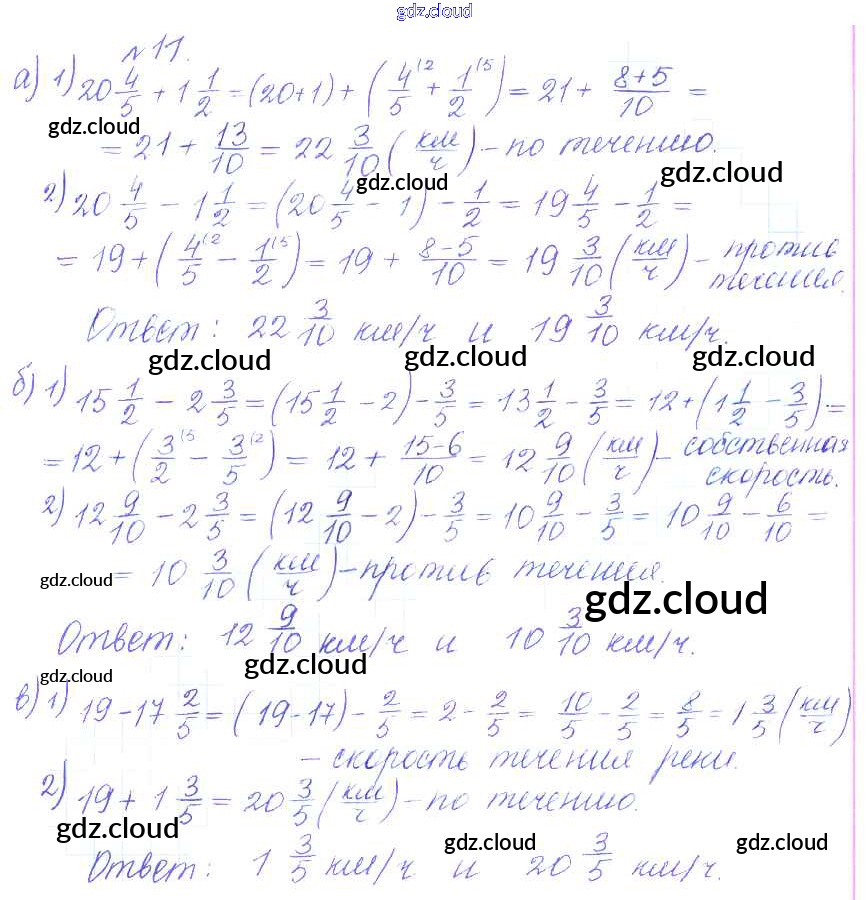 gdz.cloud
№11.
а) 1) 20 4/5 + 1 1/2 = (20+1) + (4/5 (2 + 1/2 (5) = 21 + (8+5)/10 =
gdz.cloud
= 21 + 13/10 = 22 3/10 (км/ч) – по течению.
gdz.cloud gdz.cloud
2) 20 4/5 – 1 1/2 = (20 4/5 – 1) – 1/2 = 19 4/5 – 1/2 =
= 19 + (4/5 (2 – 1/2 (5) = 19 + (8–5)/10 = 19 3/10 (км/ч) – против
течения.
Ответ: 22 3/10 км/ч и 19 3/10 км/ч.
gdz.cloud gdz.cloud gdz.cloud
б) 1) 15 1/2 – 2 3/5 = (15 1/2 – 2) – 3/5 = 13 1/2 – 3/5 = 12 + (1 1/2 – 3/5) =
= 12 + (3/2 (5 – 3/5 (2) = 12 + (15–6)/10 = 12 9/10 (км/ч) – собственная
скорость.
2) 12 9/10 – 2 3/5 = (12 9/10 – 2) – 3/5 = 10 9/10 – 3/5 = 10 9/10 – 6/10 =
gdz.cloud
= 10 3/10 (км/ч) – против течения.
gdz.cloud
Ответ: 12 9/10 км/ч и 10 3/10 км/ч.
gdz.cloud gdz.cloud
в) 1) 19 – 17 2/5 = (19–17) – 2/5 = 2 – 2/5 = 10/5 – 2/5 = 8/5 = 1 3/5 (км/ч)
– скорость течения реки.
2) 19 + 1 3/5 = 20 3/5 (км/ч) – по течению.
gdz.cloud gdz.cloud gdz.cloud
Ответ: 1 3/5 км/ч и 20 3/5 км/ч.